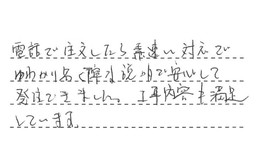 電話で注文したら素速い対応で
ゆわかり易く障り説明で安心して
発注できました。工事内容も満足
しています。